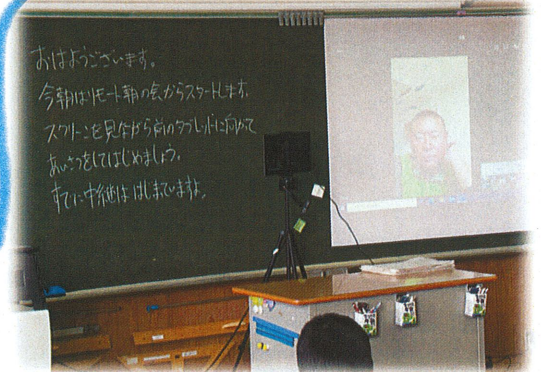 おはようございます。
今朝はリモート朝の会からスタートします。
スクリーンを見ながら前のタブレットに向かって
あいさつをしてはじめましょう。
すでに中継は はじまっていますよ。